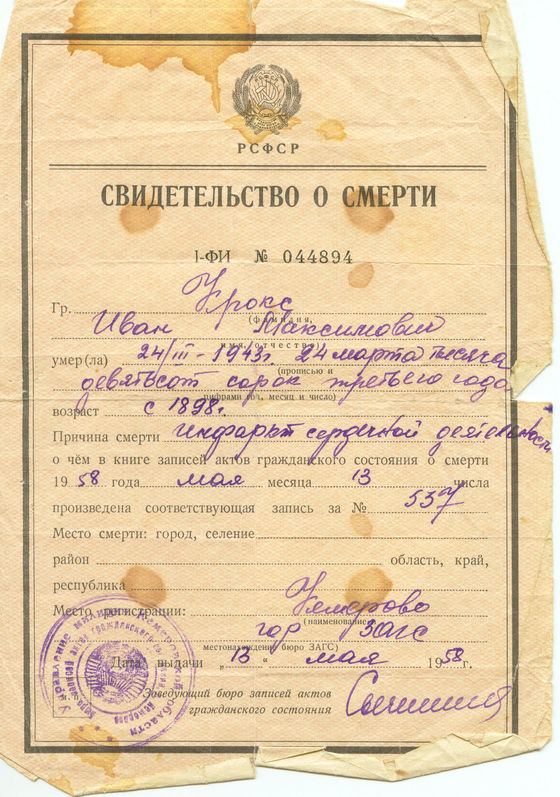 РСФСР
СВИДЕТЕЛЬСТВО О СМЕРТИ
I-ФИ № 044894
Гр. Крокс
(фамилия,
Иван Максимович
имя, отчество)
умер(ла) 24/III - 1943г. 24 марта тысяча
(прописью и
девятьсот сорок третьего года
цифрами год, месяц и число)
возраст с 1898г.
Причина смерти инфаркт сердечной деятельности
о чём в книге записей актов гражданского состояния о смерти
1958 года мая месяца 13 числа
произведена соответствующая запись за № 537
Место смерти: город, селение
район область, край,
республика
Место регистрации: Кемерово
(наименование
гор ЗАГС
местонахождение бюро ЗАГС)
Дата выдачи „13“ мая 1958г.
Заведующий бюро записей актов
гражданского состояния
Управление милиции Кемеровской области